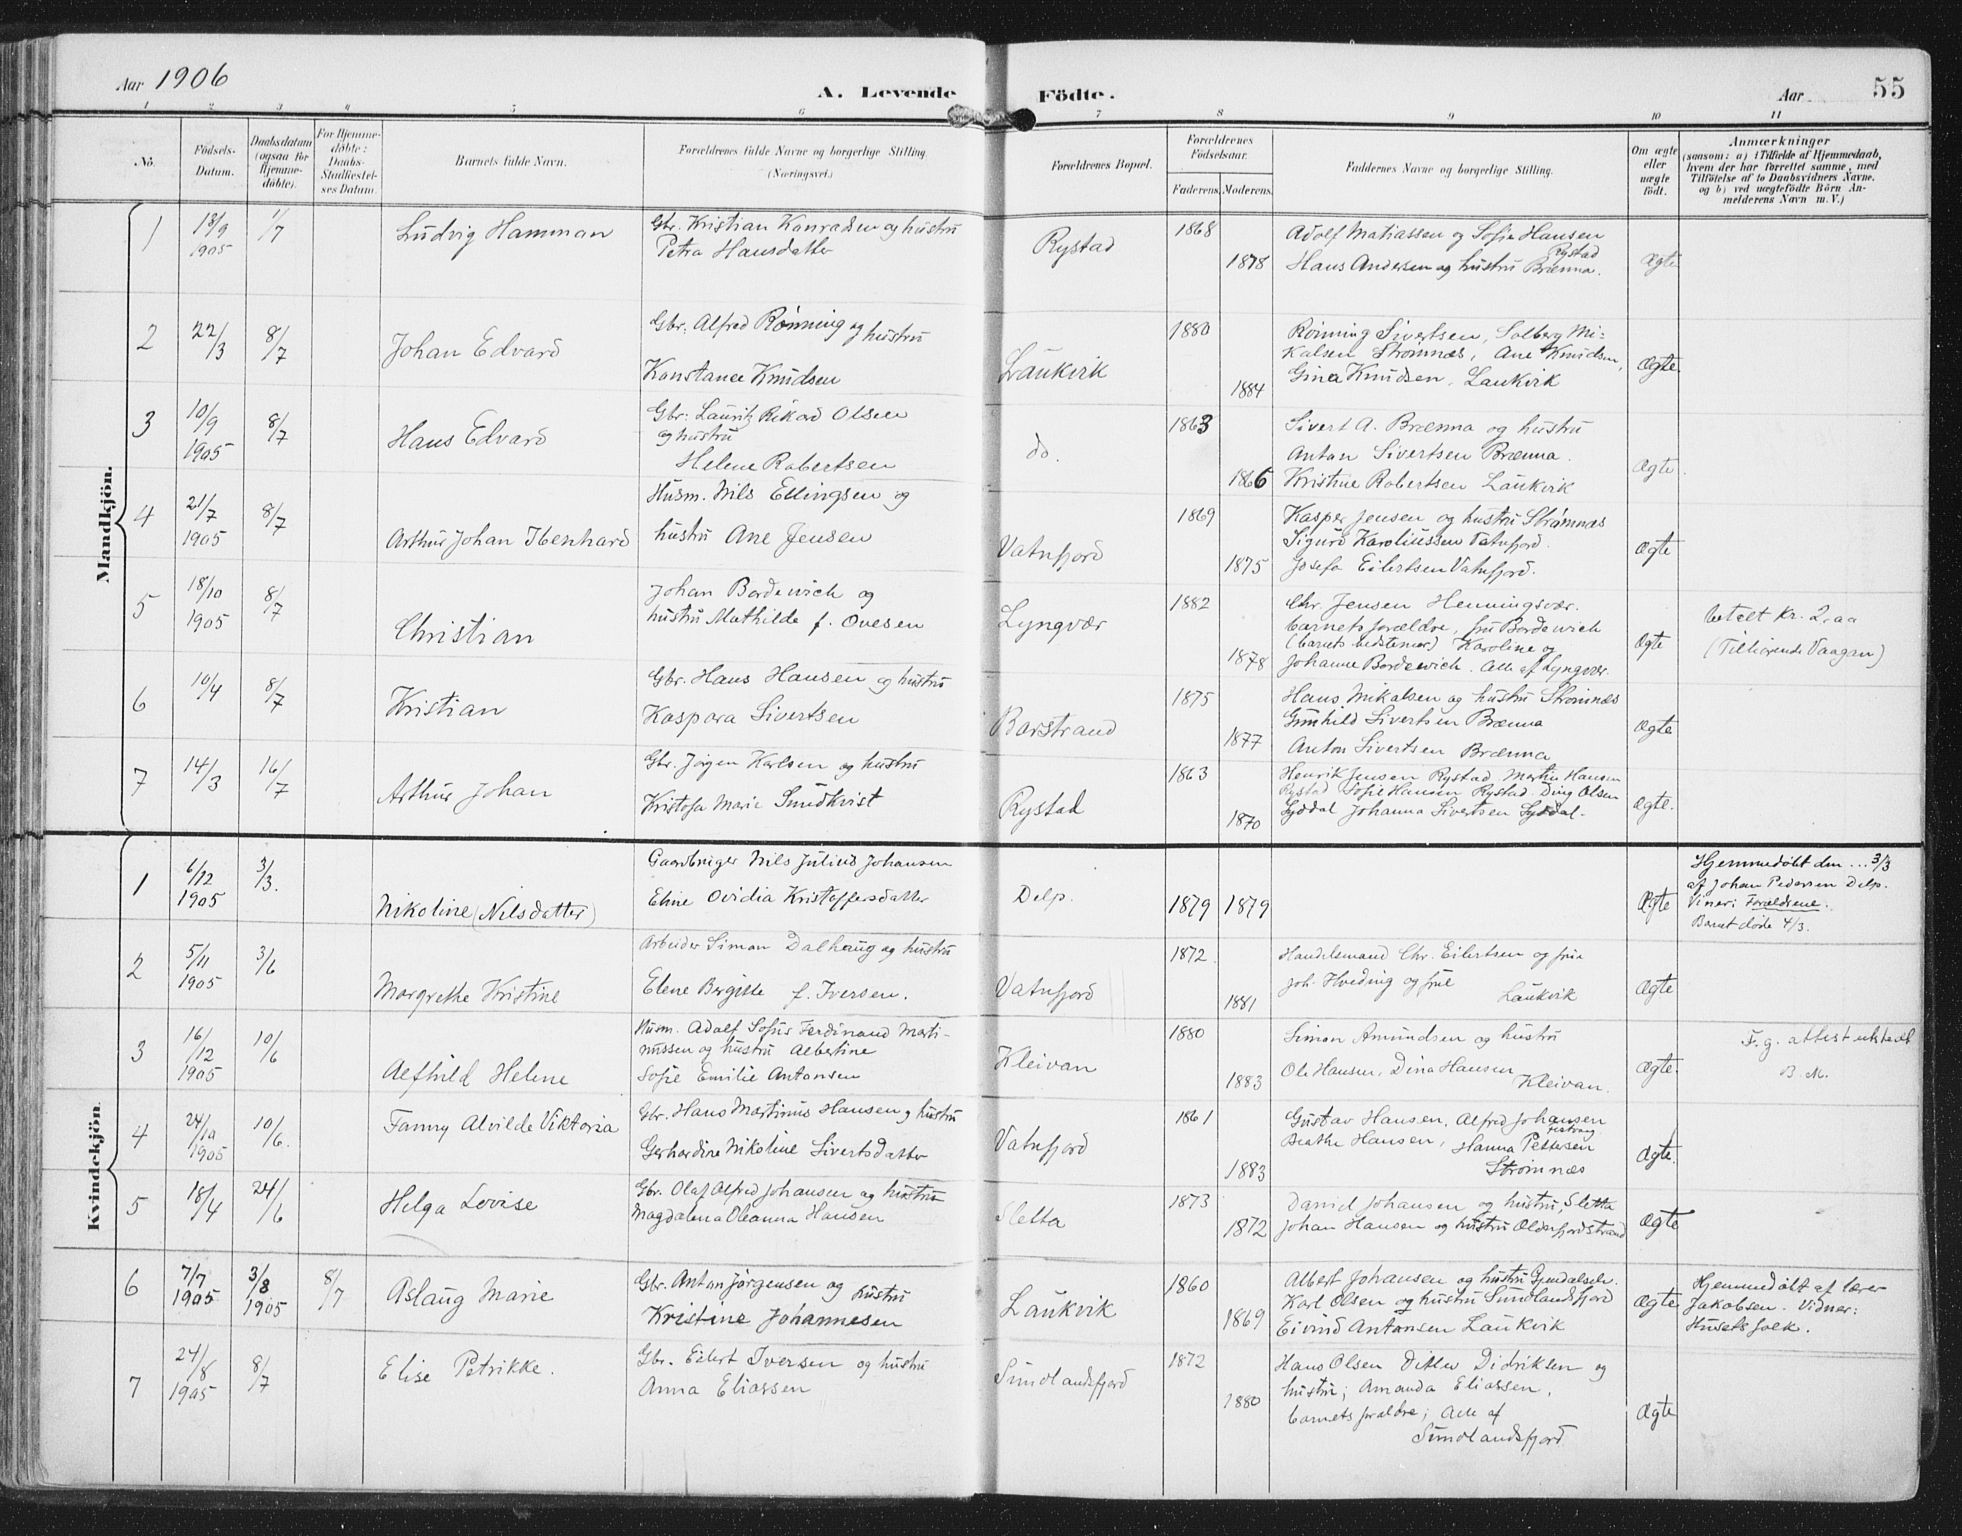 Aar 1906
A. Levende Födte.
Aar
55
1 2 3 4 5 6 7 8 9 10 11
No.
Födsels-
Datum.
Daabsdatum
(ogsaa for
Hjemme-
döbte).
For Hjemme-
döbte:
Daabs-
Stadfæstel-
ses Datum.
Barnets fulde Navn.
Forældrenes fulde Navne og borgerlige Stilling
(Næringsvei.)
Forældrenes Bopæl.
Forældrenes
Födselsaar.
Faderens. Moderens.
Faddernes Navne og borgerlige Stilling.
Om ægte
eller
uægte
födt.
Anmærkninger
(saasom: a) i Tilfælde af Hjemmedaab,
hvem der har forrettet samme, med
Tilföielse af to Daabsvidners Navne,
og b) ved uægtefödte Börn An-
melderens Navn m. V.)
Mandkjön.
1
13/9
1905
1/7
Ludvig Hamman
Gbr. Kristian Konradsen og hustru
Petra Hansdatter
Rystad
1868
1878
Adolf Matiassen og Sofie Hansen
Rystad
Hans Andersen og hustru Brænna.
Ægte
2
22/3
8/7
Johan Edvard
Gbr. Alfred Rönning og hustru
Konstance Knudsen
Laukvik
1880
1884
Rönning Sivertsen, Solberg Mi-
kalsen Strömnæs, Ane Knudsen,
Gina Knudsen, Laukvik
Ægte
3
10/9
1905
8/7
Hans Edvard
Gbr: Lauritz Rikard Olsen
og hustru
Helene Robertsen
do.
1863
1866
Sivert A. Brænna og hustru
Anton Sivertsen Brænna.
Kristine Robertsen Laukvik
Ægte
4
21/7
1905
8/7
Arthur Johan Ibenhard
Husm. Nils Ellingsen og
hustru Ane Jensen
Vatnfjord
1869
1875
Kasper Jensen og hustru Strömnæs
Sigurd Karoliussen Vatnfjord.
Josefa Eilertsen Vatnfjord.
Ægte
5
18/10
1905
8/7
Christian
Johan Bordewich og
hustru Mathilde f. Ovesen
Lyngvær
1882
1878
Chr. Jensen Henningsvær.
barnets forældre, fru Bordewich
(barnets bedstemor) Karoline og
Johanne Bordewich. Alle af Lyngvær.
Ægte
betelt kr. 2,00
(Tilhörende Vaagan)
6
10/4
8/7
Kristian
Gbr. Hans Hansen og hustru
Kaspara Sivertsen
Borstrand
1875
1877
Hans Mikalsen og hustru Strömnæs
Gunhild Sivertsen Brænna
Anton Sivertsen Brænna
Ægte
7
14/3
16/7
Arthur Johan
Gbr. Jörgen Karlsen og hustru
Kristofa Marie Sundkvist
Rystad
1863
1870
Henrik Jensen Rystad. Martin Hansen
Rystad Sofie Hansen Rystad. Ding Olsen
Syddal Johanna Sivertsen Syddal.
Ægte.
Kvindekjön.
1
6/12
1905
3/3.
Nikoline (Nilsdatter)
Gaardbruger Nils Julius Johansen
Eline Ovidia Kristoffersdatter
Delp.
1879
1879
Ægte
Hjemmedöbt den ... 3/3
af Johan Pedersen Delp.
Vineri Forældrene.
Barnet döde 4/3.
2
5/11
1905
3/6
Margrethe Kristine
Arbeider Simon Dalhaug og hustru
Elene Bergitte f. Iversen.
Vatnfjord
1872
1881
Handelsmand Chr. Eilertsen og frue
Joh. Hveding og frue
Laukvik
Ægte
3
16/12
1905
10/6
Alfhild Helene
Husm. Adolf Sofus Ferdinand Marti-
nussen og hustru Albertine
Sofie Emilie Antonsen
Kleivan
1880
1883
Simon Amundsen og hustru
Ole Hansen, Dina Hansen
Kleivan.
Ægte.
F. g. attest utstedt
B. M.
4
24/10
1905
10/6.
Fanny Alvilde Viktoria
Gbr. Hans Martinus Hansen og hustru
Gerhardine Nikoline Sivertsdatter
Vatnfjord
1861
1883
Gustav Hansen, Alfred Johansen
Festvaag
Beathe Hansen, Hanna Pettersen
Strömnæs
Ægte.
5
18/4
24/6
Helga Lovise
Gbr. Olaf Alfred Johansen og hustru
Magdalena Oleanna Hansen
Sletta
1873
1872
David Johansen og hustru, Sletta
Johan Hansen og hustru Olderfjordstrand
Ægte
6
7/7
1905
3/8
1905
8/7
Aslaug Marie
Gbr. Anton Jörgensen og hustru
Kristine Johannesen
Laukvik
1860
1869
Albert Johansen og hustru Gjendalselv.
Karl Olsen og hustru Sundlandsfjord
Eivind Antonsen Laukvik
Ægte
Hjemmedöbt af lærer
Jakobsen. Vidner:
Husets folk.
7
24/8
1905
8/7
Elise Petrikke.
Gbr. Eilert Iversen og hustru
Anna Eliassen
Sundlandsfjord
1872
1880
Hans Olsen Ditlev Didriksen og
hustru; Amanda Eliassen,
barnets foraldre; Alle af
Sundlandsfjord
Ægte